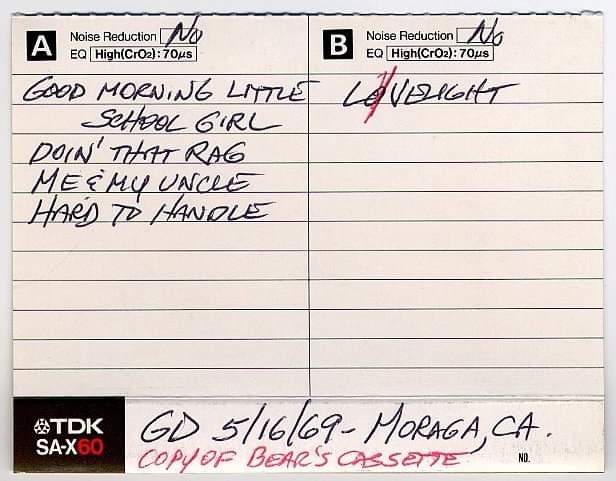 A Noise Reduction No
EQ High(CrO2):70μs
GOOD MORNING LITTLE
SCHOOL GIRL
DOIN' THAT RAG
ME & MY UNCLE
HARD TO HANDLE
B Noise Reduction No
EQ High(CrO2):70μs
LOVELIGHT
TDK
SA-X60
GD 5/16/69 - MORAGA, CA.
COPY OF BEAR'S CASSETTE
NO.